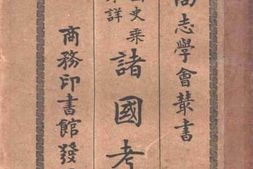 尚志學會叢書
國史乘
未詳
諸國考
商務印書館發